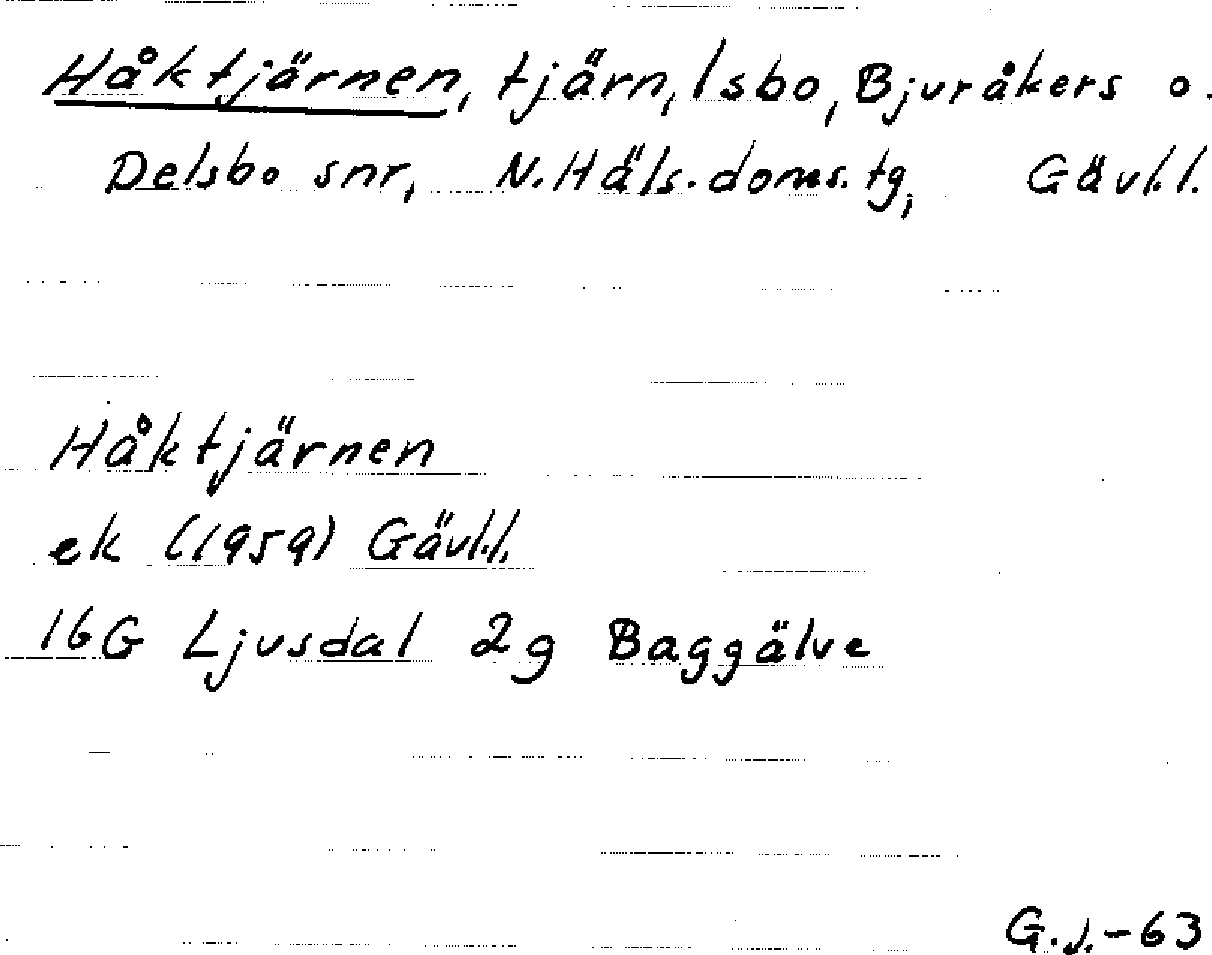 Håktjärnen, tjärn, Isbo, Bjuråkers o.
Delsbo snr, N.Häls.doms.tg, Gävl.l.
Håktjärnen
ek (1959) Gävl.l.
16G Ljusdal 2g Baggälve
G.J.-63